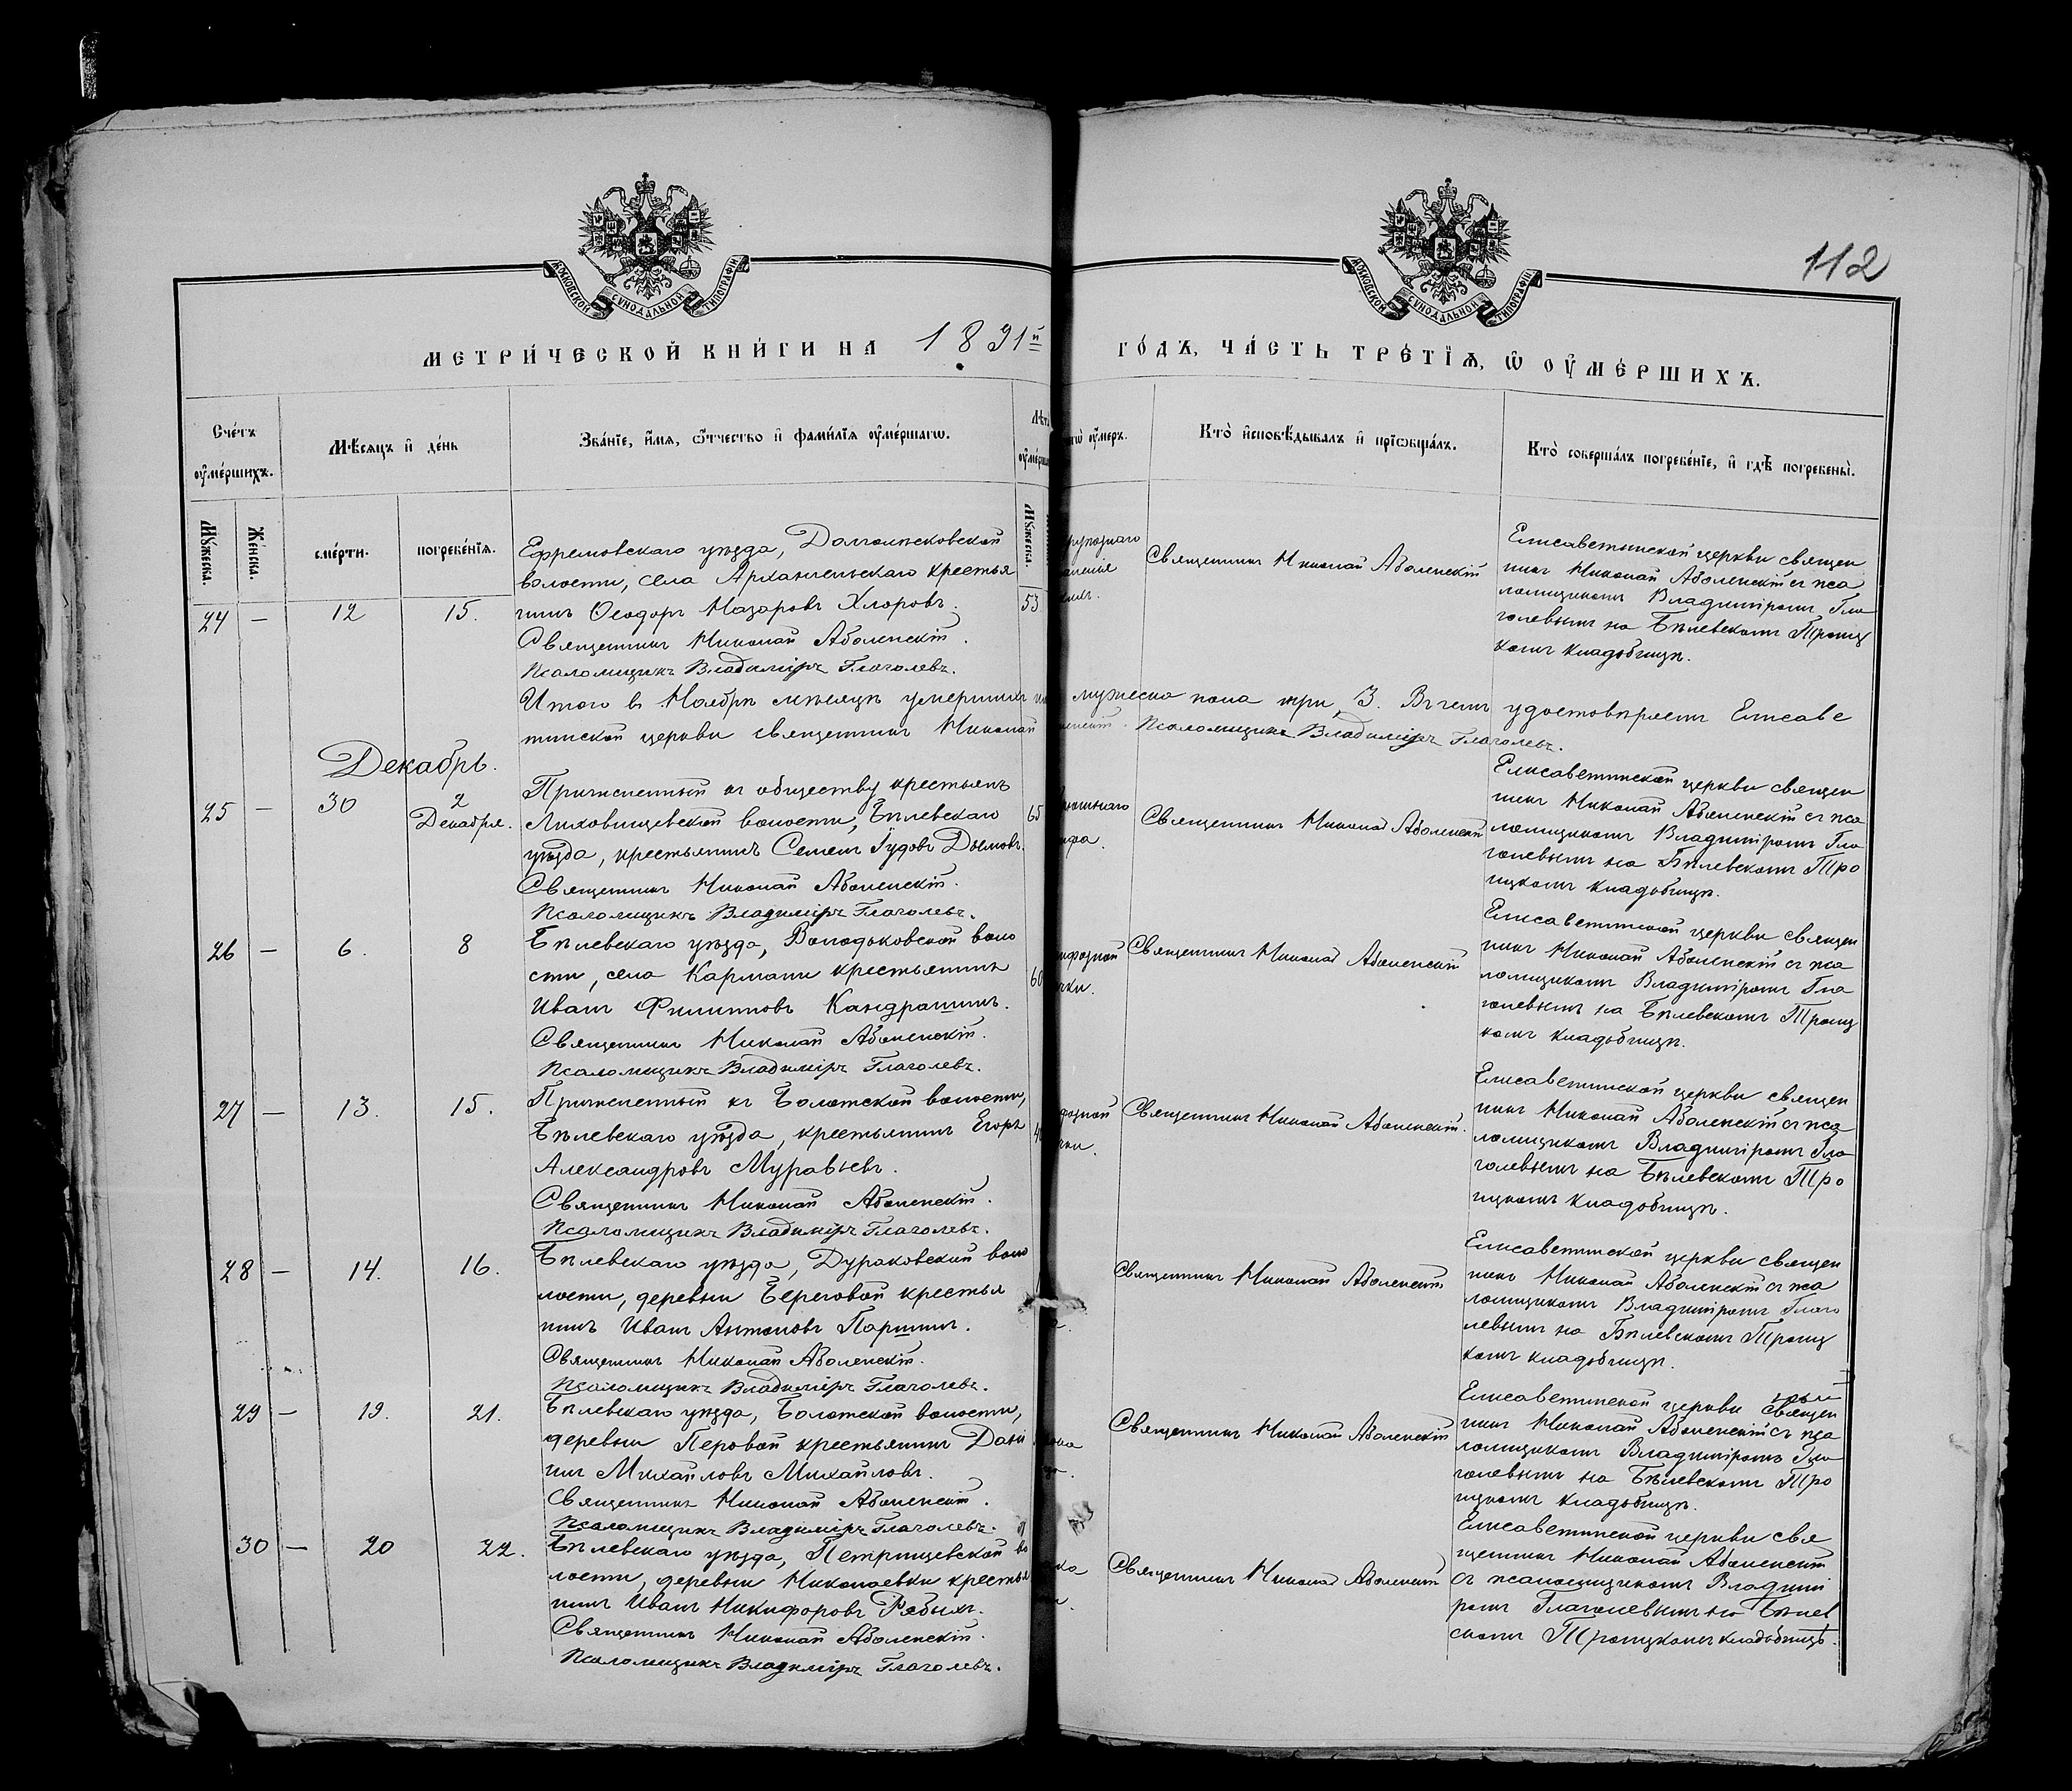 МОСКОВСКОЙ СѴНОДАЛЬНОЙ ТИПОГРАФІИ
МОСКОВСКОЙ СѴНОДАЛЬНОЙ ТИПОГРАФІИ
112
МЕТРИ́ЧЕСКОЙ КНИ́ГИ НА 1891й
ГО́ДЪ, ЧА́СТЬ ТРЕ́ТІѦ, Ѡ҆ ОУ҆МЕ́РШИХЪ.
Сче́тъ
оу҆ме́ршихъ.
Мꙋ́жеска.
Же́нска.
Мѣ́сяцъ и҆ де́нь
сме́рти.
погребе́нїѧ.
Зва́нїе, и҆́мѧ, ѻ҆́тчество и҆ фами́лїѧ оу҆ме́ршагѡ.
Мꙋ́жеска.
оу҆́меръ.
Кто̀ и҆сповѣ́дывалъ и҆ прїѡбща́лъ.
Кто̀ соверша́лъ погребе́нїе, и҆ гдѣ̀ погребены̀.
24 — 12 15.
Ефремовскаго уѣзда, Долголѣсковской
волости, села Архангельскаго крестья
нинъ Ѳеодоръ Назаровъ Хлоровъ.
Священникъ Николай Аболенскій.
Псаломщикъ Владиміръ Глаголевъ.
53
Священникъ Николай Аболенскій
Елисаветинской церкви священ
никъ Николай Аболенскій съ пса
ломщикомъ Владиміромъ Гла
голевымъ на Бѣлевскомъ Троиц
комъ кладбищѣ.
Итого въ Ноябрѣ мѣсяцѣ умершихъ мужеска пола три, 3. Въ чемъ удостовѣряемъ Елисаве
тинской церкви священникъ Николай Псаломщикъ Владиміръ Глаголевъ.
Декабрь.
25 — 30 2
Декабря.
Причисленный къ обществу крестьянъ
Лиховищевской волости, Бѣлевскаго
уѣзда, крестьянинъ Семенъ Іудовъ Дымовъ.
Священникъ Николай Аболенскій.
Псаломщикъ Владиміръ Глаголевъ.
65
Священникъ Николай Аболенскій
Елисаветинской церкви священ
никъ Николай Аболенскій съ пса
ломщикомъ Владиміромъ Гла
голевымъ на Бѣлевскомъ Тро
ицкомъ кладбищѣ.
26 — 6. 8
Бѣлевскаго уѣзда, Володьковской воло
сти, села Карманы крестьянинъ
Иванъ Филипповъ Кандрашинъ.
Священникъ Николай Аболенскій.
Псаломщикъ Владиміръ Глаголевъ.
60
Священникъ Николай Аболенскій
Елисаветинской церкви священ
никъ Николай Аболенскій съ пса
ломщикомъ Владиміромъ Гла
голевымъ на Бѣлевскомъ Троиц
комъ кладбищѣ.
27 — 13. 15.
Причисленный къ Болотской волости,
Бѣлевскаго уѣзда, крестьянинъ Егоръ
Александровъ Муравьевъ.
Священникъ Николай Аболенскій.
Псаломщикъ Владиміръ Глаголевъ.
Священникъ Николай Аболенскій.
Елисаветинской церкви священ
никъ Николай Аболенскій съ пса
ломщикомъ Владиміромъ Гла
голевымъ на Бѣлевскомъ Тро
ицкомъ кладбищѣ.
28 — 14. 16.
Бѣлевскаго уѣзда, Дураковской воло
лости, деревни Береговой крестья
нинъ Иванъ Антоновъ Паршинъ.
Священникъ Николай Аболенскій.
Псаломщикъ Владиміръ Глаголевъ.
Священникъ Николай Аболенскій
Елисаветинской церкви священ
никъ Николай Аболенскій съ пса
ломщикомъ Владиміромъ Глаго
левымъ на Бѣлевскомъ Троиц
комъ кладбищѣ.
29 — 19. 21.
Бѣлевскаго уѣзда, Болотской волости,
деревни Перовой крестьянинъ Дані
илъ Михайловъ Михайловъ.
Священникъ Николай Аболенскій.
Псаломщикъ Владиміръ Глаголевъ.
Священникъ Николай Аболенскій
Елисаветинской церкви священ
никъ Николай Аболенскій съ пса
ломщикомъ Владиміромъ Гла
голевымъ на Бѣлевскомъ Тро
ицкомъ кладбищѣ.
30 — 20 22.
Бѣлевскаго уѣзда, Петрищевской во
лости, деревни Николаевки крестья
нинъ Иванъ Никифоровъ Рябыхъ.
Священникъ Николай Аболенскій.
Псаломщикъ Владиміръ Глаголевъ.
Священникъ Николай Аболенскій
Елисаветинской церкви свя
щенникъ Николай Аболенскій
съ псаломщикомъ Владими
ромъ Глаголевымъ на Бѣлев
скомъ Троицкомъ кладбищѣ.